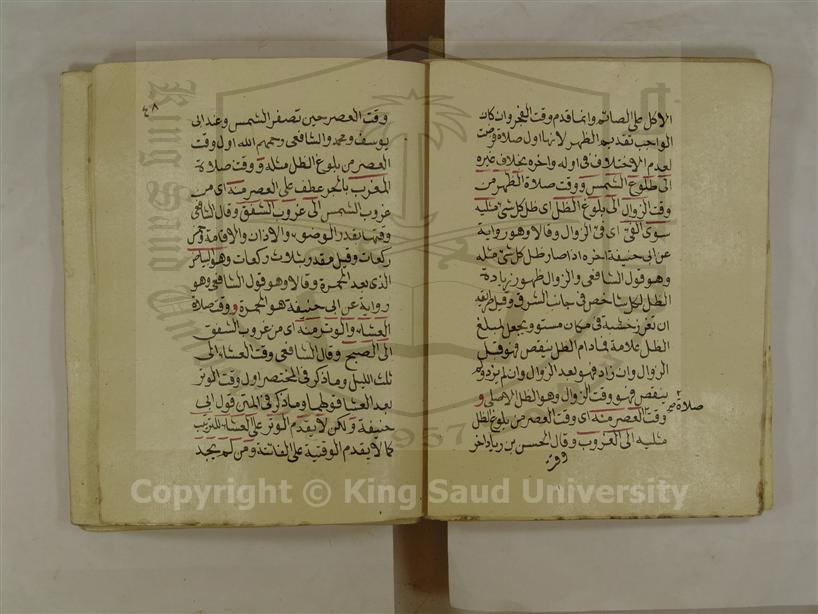 الاكل على الصائم وانما قدم وقت الفجر وان كان
الواجب تقديم الظهر لانها اول صلاة فرضت
لعدم الاختلاف في اوله واخره بخلاف غيره
الى طلوع الشمس ووقت صلاة الظهر من
وقت الزوال الى بلوغ الظل اى ظل كل شئ مثليه
سوى الفئ اى فئ الزوال وقالا وهو رواية
عن ابى حنيفة اخره اذا صار ظل كل شئ مثله
وهو قول الشافعى والزوال ظهور زيادة
الظل لكل شاخص في جانب الشرق وقيل طريقه
ان تغرز خشبة في مكان مستو ويجعل لمبلغ
الظل علامة فما دام الظل ينقص فهو قبل
الزوال وان زاد فهو بعد الزوال وان لم يزد ولم
ينقص فهو وقت الزوال وهو الظل الاصلى و
صلاة صح
وقت العصر منه اى وقت العصر من بلوغ الظل
مثليه الى الغروب وقال الحسن بن زياد اخر
وقت
٤٨
وقت العصر حين تصفر الشمس وعند ابى
يوسف ومحمد والشافعى رحمهم الله اول وقت
العصر من بلوغ الظل مثله و وقت صلاة
المغرب بالجر عطف على العصر منه اى من
غروب الشمس الى غروب الشفق وقال الشافعى
وقتها بقدر الوضوء والاذان والاقامة وخمس
ركعات وقيل مقدر بثلاث ركعات وهو البياض
الذى بعد الحمرة وقالا وهو قول الشافعى وهو
رواية عن ابى حنيفة هو الحمرة و وقت صلاة
العشاء والوتر منه اى من غروب الشفق
الى الصبح وقال الشافعى وقت العشاء الى
ثلث الليل وما ذكر في المختصر اول وقت الوتر
بعد العشاء قولهما وما ذكر في المتن قول ابى
حنيفة ولكن لا يقدم الوتر على العشاء للترتيب
كما لا يقدم الوقتية على الفائتة ومن لم يجد
Copyright © King Saud University
King Saud University
1957